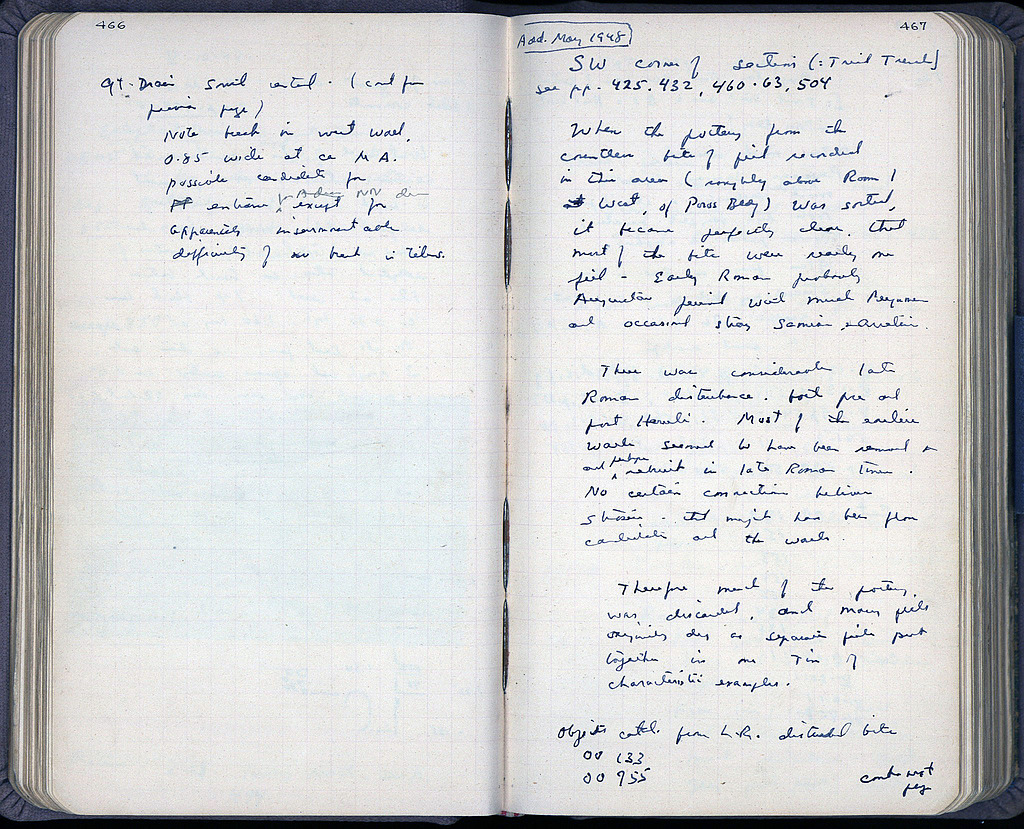 466
Gt. Drain South control. (cont from
previous page)
Note break in west wall,
0.85 wide at ca M A.
possible candidate for
entrance except for
apparently insurmountable
difficulty of no break in Tiles.
467
Add. May 1948
SW corner of section (: Trial Trench)
see pp. 425-432, 460-63, 504
When the pottery from the
countless bits of fill recorded
in this area (roughly above Room 1
West, of Poros Bldg) was sorted,
it became perfectly clear, that
most of the bits were really one
fill - Early Roman probably
Augustan period with much Pergamene
and occasional stray Samian
There was considerable late
Roman disturbance. both pre and
post Heruli. Most of the earlier
walls seemed to have been removed
and perhaps rebuilt in late Roman times.
No certain connection between
that might have been floor
candidates and the walls.
Therefore much of the pottery,
was discarded, and many fills
originally dug as separate fills put
together in one Tin of
characteristic examples.
Objects catal. from L.R. disturbed bits
OO 133
OO 955
cont. next
pg.